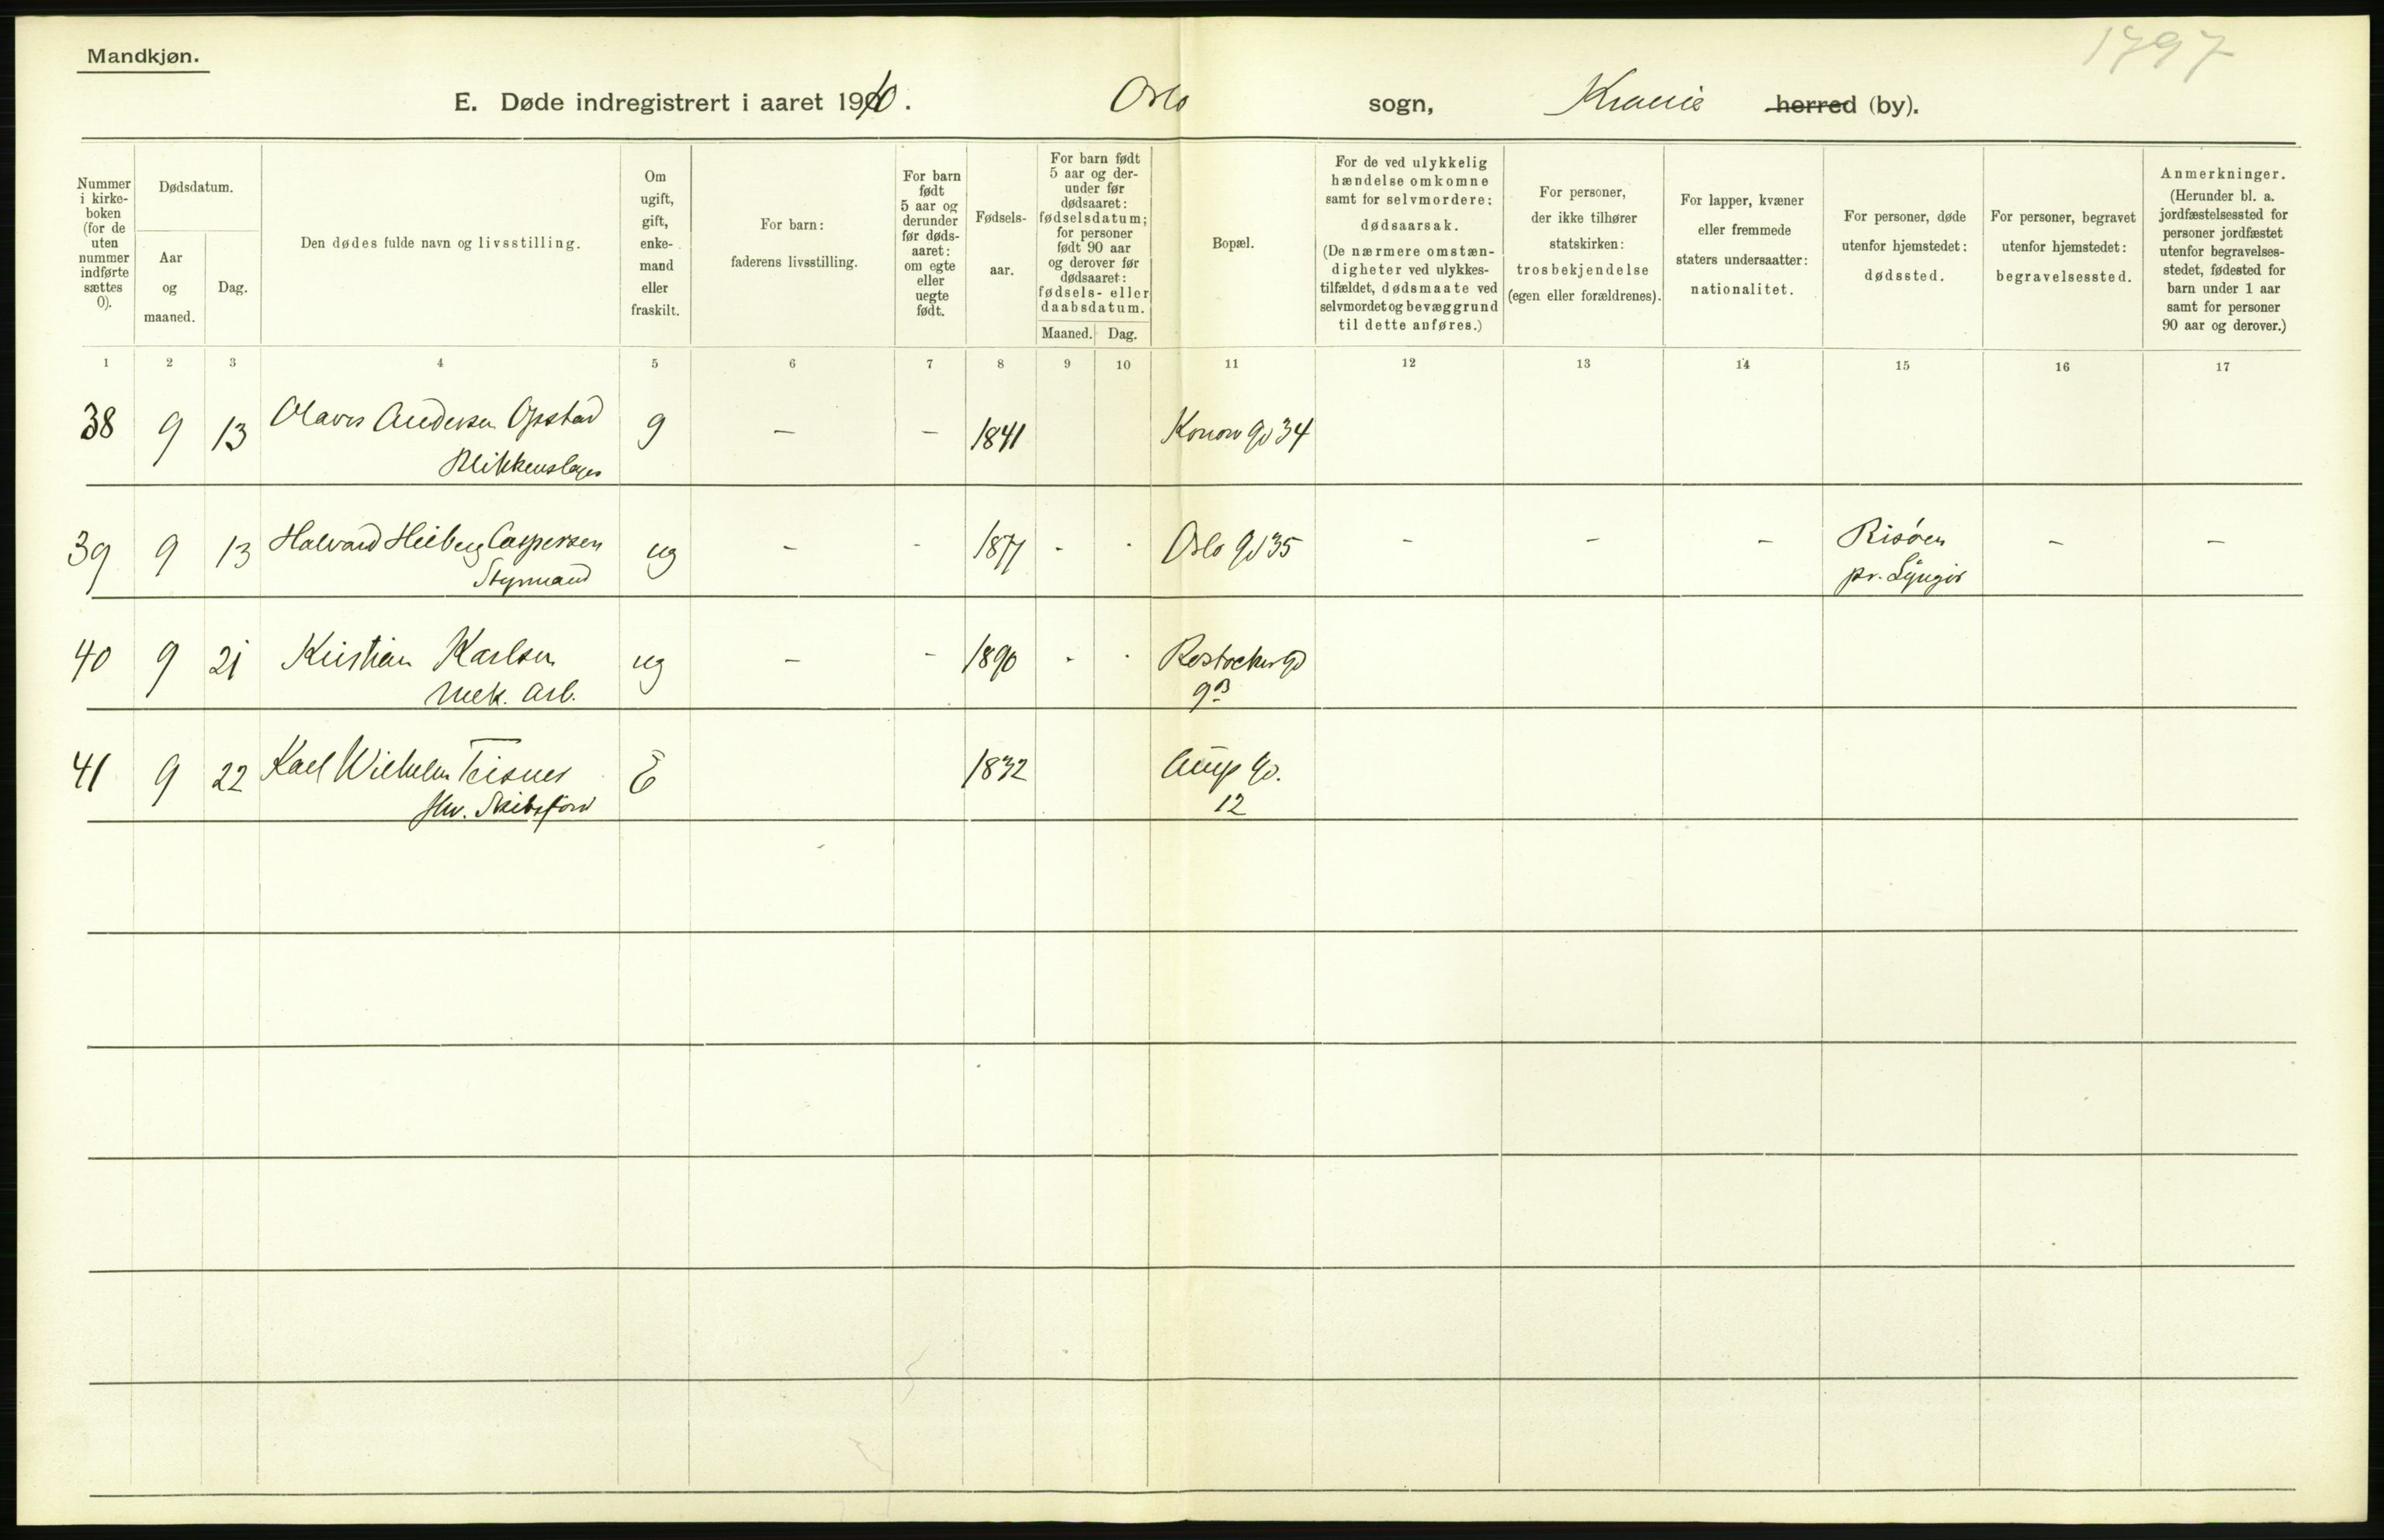 Mandkjøn.
1797
E. Døde indregistrert i aaret 1910. Oslo sogn, Krania herred (by).
Nummer i kirke- boken (for de uten nummer indførte sættes 0).
Dødsdatum.
Aar og maaned.
Dag.
Den dødes fulde navn og livsstilling.
Om ugift, gift, enke- mand eller fraskilt.
For barn: faderens livsstilling.
For barn født 5 aar og derunder før døds- aaret: om egte eller uegte født.
Fødsels- aar.
For barn født 5 aar og der- under før dødsaaret: fødselsdatum; for personer født 90 aar og derover før dødsaaret: fødsels- eller daabsdatum.
Maaned. Dag.
Bopæl.
For de ved ulykkelig hændelse omkomne samt for selvmordere: dødsaarsak. (De nærmere omstæn- digheter ved ulykkes- tilfældet, dødsmaate ved selvmordet og bevæggrund til dette anføres.)
For personer, der ikke tilhører statskirken: trosbekjendelse (egen eller forældrenes).
For lapper, kvæner eller fremmede staters undersaatter: nationalitet.
For personer, døde utenfor hjemstedet: dødssted.
For personer, begravet utenfor hjemstedet: begravelsessted.
Anmerkninger. (Herunder bl. a. jordfæstelsessted for personer jordfæstet utenfor begravelses- stedet, fødested for barn under 1 aar samt for personer 90 aar og derover.)
1 2 3 4 5 6 7 8 9 10 11 12 13 14 15 16 17
38 9 13 Olaves Andersen Opstad g - - 1841 Konow gd 34
Blikkenslager
39 9 13 Halvard Heiberg Caspersen ug - - 1877 - - Oslo gd 35 - - - Risöen - -
Styrmand pr. Lyngör
40 9 21 Kristian Karlsen ug - - 1890 - - Rostocker gd
mek. arb. 9B
41 9 22 Karl Wilhelm Teisner E 1832 gd.
fhv. Skibsförer 12